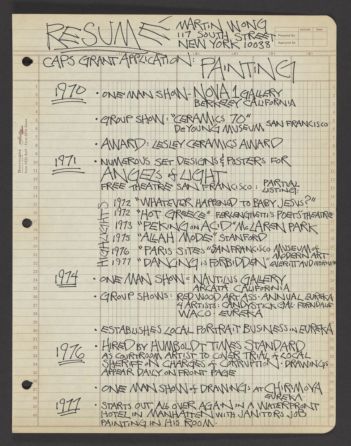 RESUMÉ
MARTIN WONG
117 SOUTH STREET
NEW YORK 10038
CAPS GRANT APPLICATION: PAINTING
1970 • ONE MAN SHOW: NOVA 1 GALLERY
BERKELEY CALIFORNIA
• GROUP SHOW: "CERAMICS 70"
DEYOUNG MUSEUM SAN FRANCISCO
• AWARD: LESLEY CERAMICS AWARD
1971 • NUMEROUS SET DESIGNS & POSTERS FOR
ANGELS OF LIGHT
FREE THEATRE SAN FRANCISCO: PARTIAL
LISTING
HIGHLIGHTS
1972 "WHATEVER HAPPENED TO BABY JESUS?"
1972 "HOT GREECE" FERLENGHETTI'S POETS THEATRE
1973 "PEKING ON ACID" McLAREN PARK
1975 "ALLAH MODE" STANFORD
1976 "PARIS SITES" SAN FRANCISCO MUSEUM OF
MODERN ART
1977 "DANCING IS FORBIDDEN"
1974 • ONE MAN SHOW: NAUTILUS GALLERY
ARCATA CALIFORNIA
• GROUP SHOWS: REDWOOD ART ASS. ANNUAL EUREKA
4 ARTISTS: CANDYSTICK GAL FERNDALE
WACO: EUREKA
• ESTABLISHES LOCAL PORTRAIT BUSINESS IN EUREKA
1976 • HIRED BY HUMBOLDT TIMES STANDARD
AS COURTROOM ARTIST TO COVER TRIAL OF LOCAL
SHERIFF ON CHARGES OF CORRUPTION: DRAWINGS
APPEAR DAILY ON FRONT PAGE
• ONE MAN SHOW OF DRAWING: AT CHIRIMOYA
EUREKA
1977 • STARTS OUT ALL OVER AGAIN IN A WATERFRONT
HOTEL IN MANHATTEN WITH JANITORS JOB
PAINTING IN HIS ROOM.